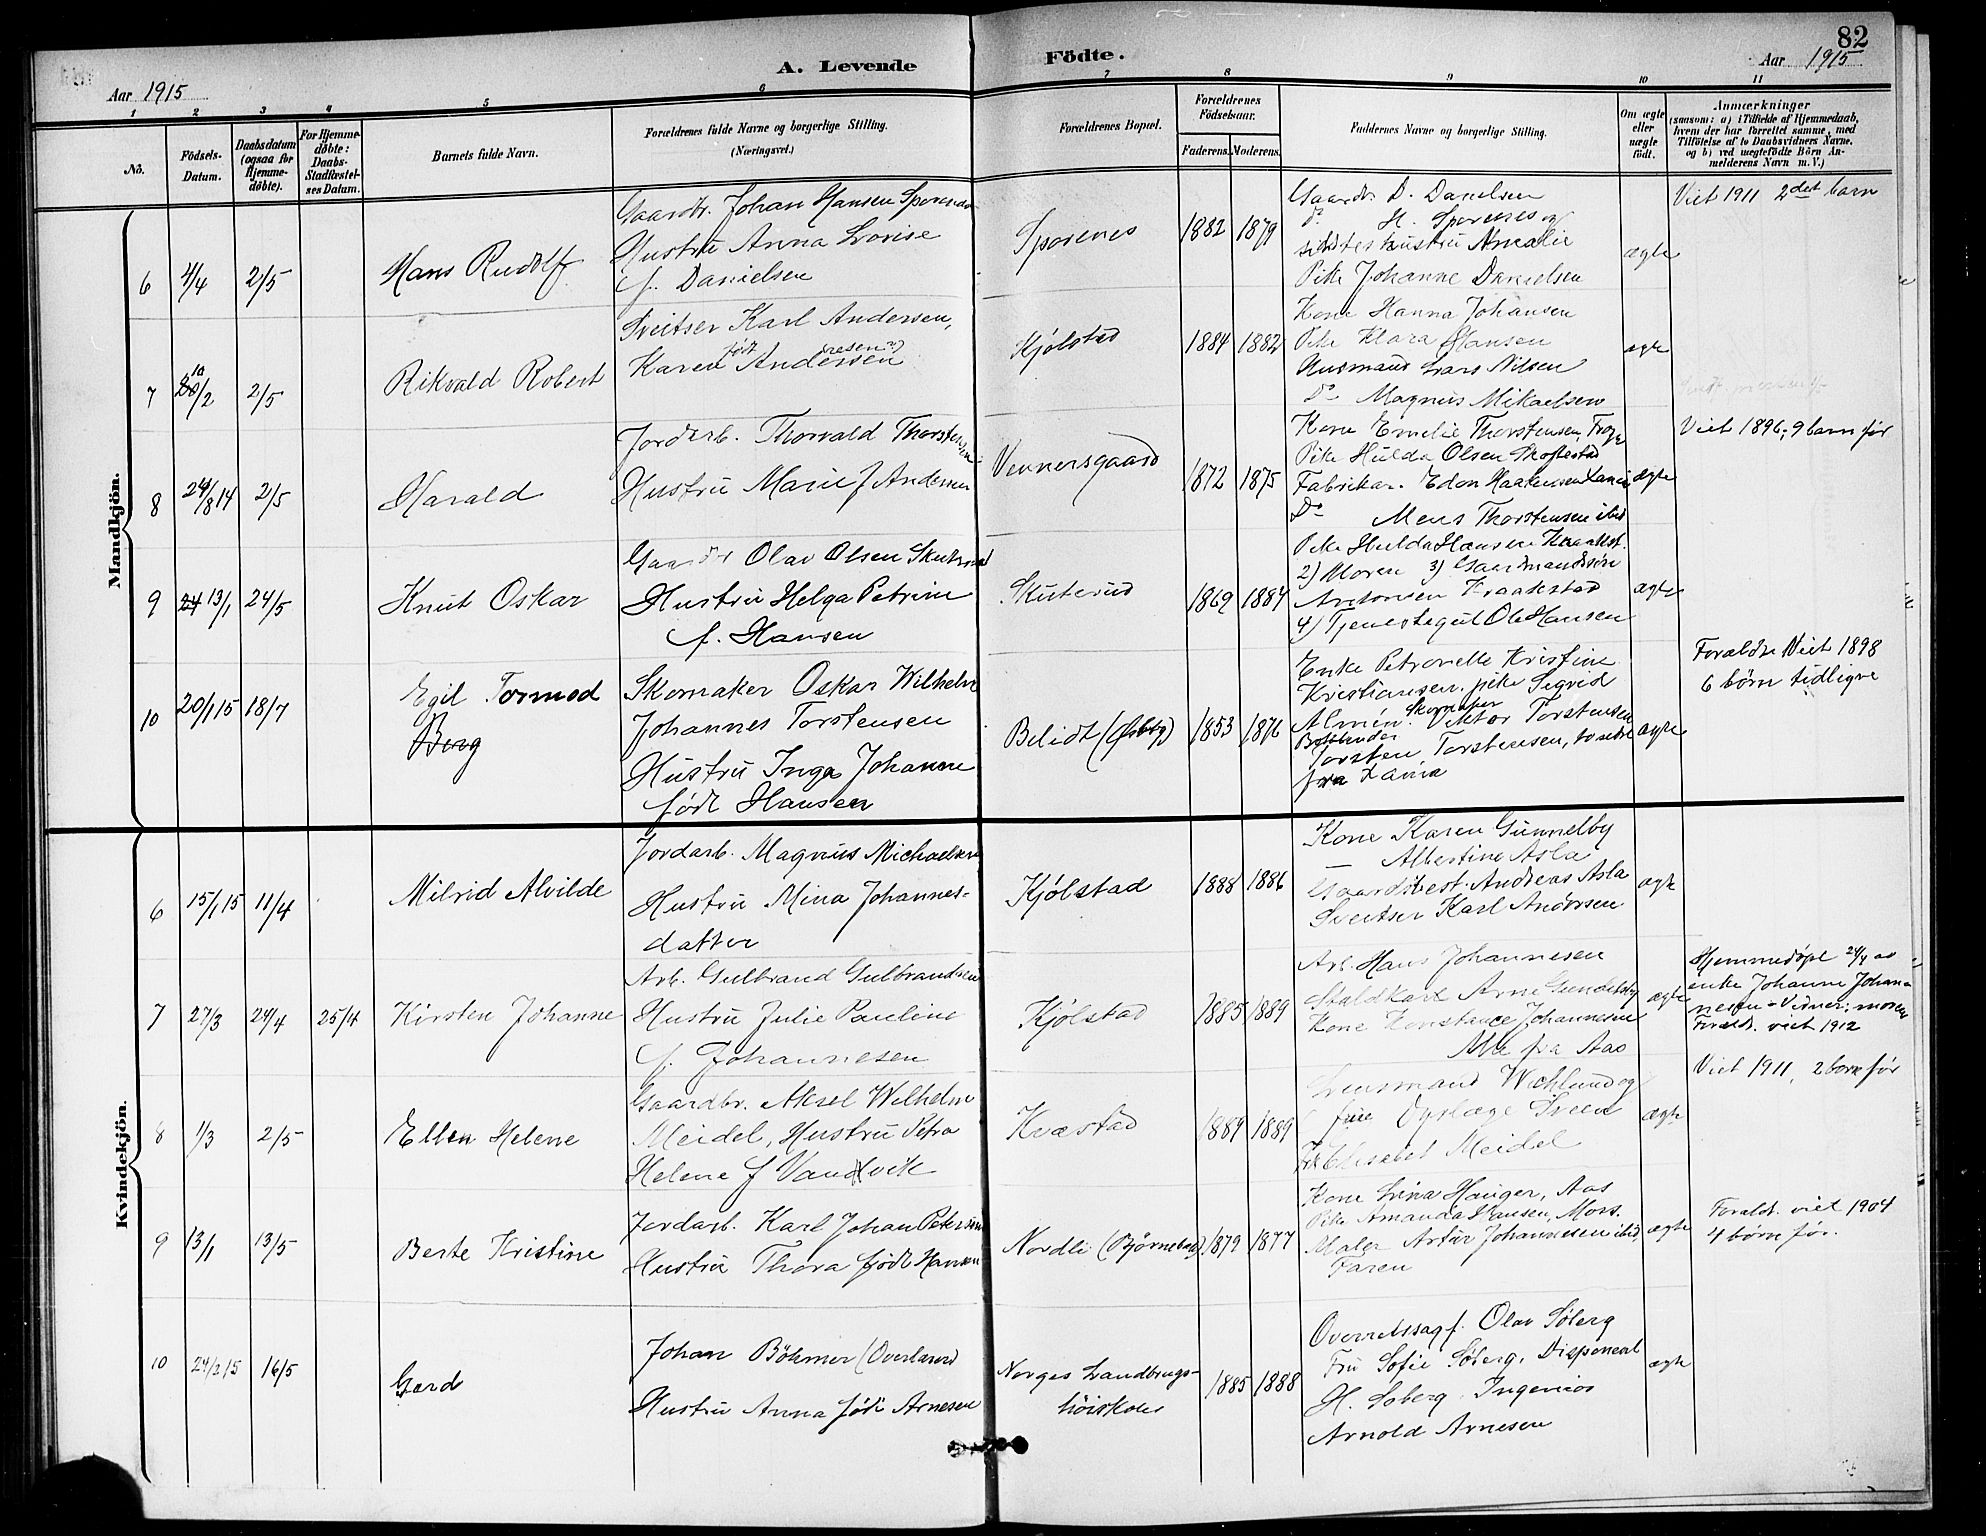 82
A. Levende
Födte.
Aar 1915
Aar 1915
1 2 3 4 5 6 7 8 9 10 11
No.
Födsels-Datum.
Daabsdatum (ogsaa for Hjemme-døbte).
For Hjemme-døbte: Daabs-Stadfæstel-ses Datum.
Barnets fulde Navn.
Forældrenes fulde Navne og borgerlige Stilling. (Næringsvei.)
Forældrenes Bopæl.
Forældrenes Födselsaar.
Faderens. Moderens.
Faddernes Navne og borgerlige Stilling.
Om ægte eller uægte født.
Anmærkninger
(saasom: a) i Tilfælde af Hjemmedaab,
hvem der har forrettet samme, med
Tilföielse af to Daabsvidners Navne.
og b) ved uægtefödte Börn An-
melderens Navn m. V.)
Mandkjön.
6 4/4 2/5 Hans Rudolf
Gaardbr. Johan Hansen
Hustru Anna Lovise
f. Danielsen
Sporenes 1882 1879
Gaardbr. D. Danielsen
do H. Sporenes og
sidstes hustru Amalie
Pike Johanne Danielsen
ægte
Viet 1911 2det barn
7 10/2 2/5 Rikvald Robert
Sveitser Karl Andersen,
Karen født Andersen (resen?)
Kjølstad 1884 1882
Kone Hanna Johansen
Pike Klara Hansen
Husmand Lars Nilsen
do Magnus Mikaelsen
ægte
8 24/8 14 2/5 Harald
Jordarb. Thorvald Thorstensen
Hustru Marie f Andersen
Vennersgaard 1872 1875
Kone Emelie Thorstensen, Frogn
Pike Hulda Olsen Skoftestad
Fabrikar. Edon Haakensen Lanin
Do Mens Thorstensen ibid
ægte
Viet 1896; 9 barn før
9 24 13/1 24/5 Knut Oskar
Gaardbr Olav Olsen Skuterud
Hustru Helga Petrine
f. Hansen
Skuterud 1869 1884
Pike Hulda Hansen Kraakst.
2) Moren 3) Gaardmandssøn
Antonsen Kraakstad
4) Tjenestegut Ole Hansen
ægte
10 20/1 15 18/7 Egil Tormod
Berg
Skomaker Oskar Wilhelm
Johannes Torstensen
Hustru Inga Johanne
født Hansen
Belidt (Østby) 1853 1876
Enke Petronelle Kristine
Kristiansen. pike Sigrid
Almén. Skomaker Viktor Torstensen
Torsten Torstensen, to sidste
fra Lania
ægte
Forældre Viet 1898
6 børn tidligre
Kvindekjön.
6 15/1 15 11/4 Milrid Alvilde
Jordarb. Magnus Michaelsen
Hustru Mina Johannes-
datter
Kjølstad 1888 1886
Kone Karen Gunnelby
— Albertine Asla
Gaardsbest. Andreas Asla
Sveitser Karl Andersen
ægte
7 27/3 24/4 25/4 Kirsten Johanne
Arb. Gulbrand Gulbrandsen
Hustru Julie Pauline
f. Johannesen
Kjølstad 1885 1889
Arb. Hans Johannesen
Staldkarl Arne Gundelsby
Kone Konstance Johannesen
Alle fra Aas
ægte
Hjemmedøpt 24/4 av
enke Johanne Johan-
nesen - Vidner: moren
Foræld. viet 1912
8 1/3 2/5 Ellen Helene
Gaardbr. Aksel Wilhelm
Meidel, Hustru Petra
Helene f Vandvik
Kvæstad 1889 1889
Lensmand Wichlund og
frue Dyrlæge Sveen
Frk Elisabet Meidel
ægte
Viet 1911, 2 barn før
9 13/1 13/5 Berte Kristine
Jordarb. Karl Johan Petersen
Hustru Thora født Hansen
Nordli (Bjørnebæk) 1879 1877
Kone Lina Hauger, Aas
Pike Amanda Hansen, Mors.
Maler Artur Johannesen ibid,
Faren
ægte
Foræld. viet 1904
4 børn før.
10 24/2 15 16/5 Gerd
Johan Böhmer (Overlærer)
Hustru Anna født Arnesen
Norges Landbrugs-
höiskole 1885 1888
Overretssagf. Olav Søberg
Fru Sofie Søberg, Disponent
H. Søberg. Ingeniør
Arnold Arnesen
ægte